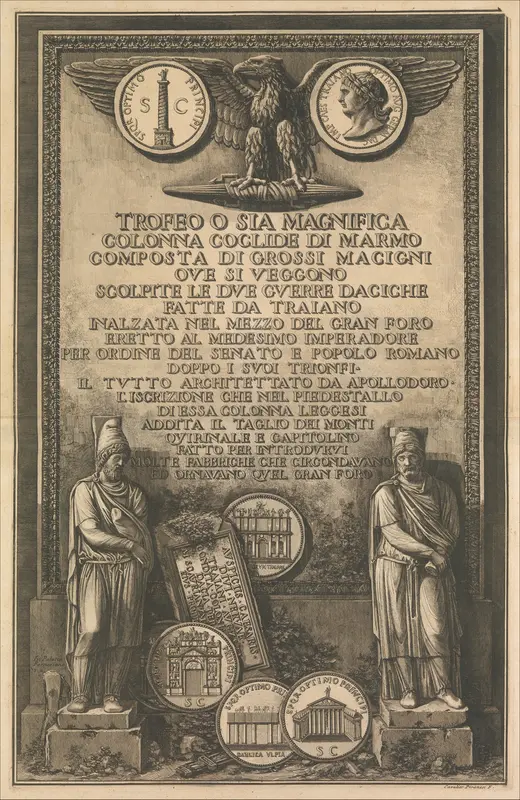 SPQR OPTIMO PRINCIPI
S C
IMP CAES TRAIAN
TROFEO O SIA MAGNIFICA
COLONNA COCLIDE DI MARMO
COMPOSTA DI GROSSI MACIGNI
OVE SI VEGGONO
SCOLPITE LE DVE GVERRE DACICHE
FATTE DA TRAIANO
INALZATA NEL MEZZO DEL GRAN FORO
ERETTO AL MEDESIMO IMPERADORE
PER ORDINE DEL SENATO E POPOLO ROMANO
DOPPO I SVOI TRIONFI·
IL TVTTO ARCHITETTATO DA APOLLODORO·
L'ISCRIZIONE CHE NEL PIEDESTALLO
DI ESSA COLONNA LEGGESI
ADDITA IL TAGLIO DEI MONTI
QVIRINALE E CAPITOLINO
FATTO PER INTRODVRVI
MOLTE FABBRICHE CHE CIRCONDAVANO
ED ORNAVANO QVEL GRAN FORO
PRINCIPI
S C
SPQR OPTIMO PRI
BASILICA VLPIA
SPQR OPTIMO PRINCIPI
S C
Cavalier Piranesi F.